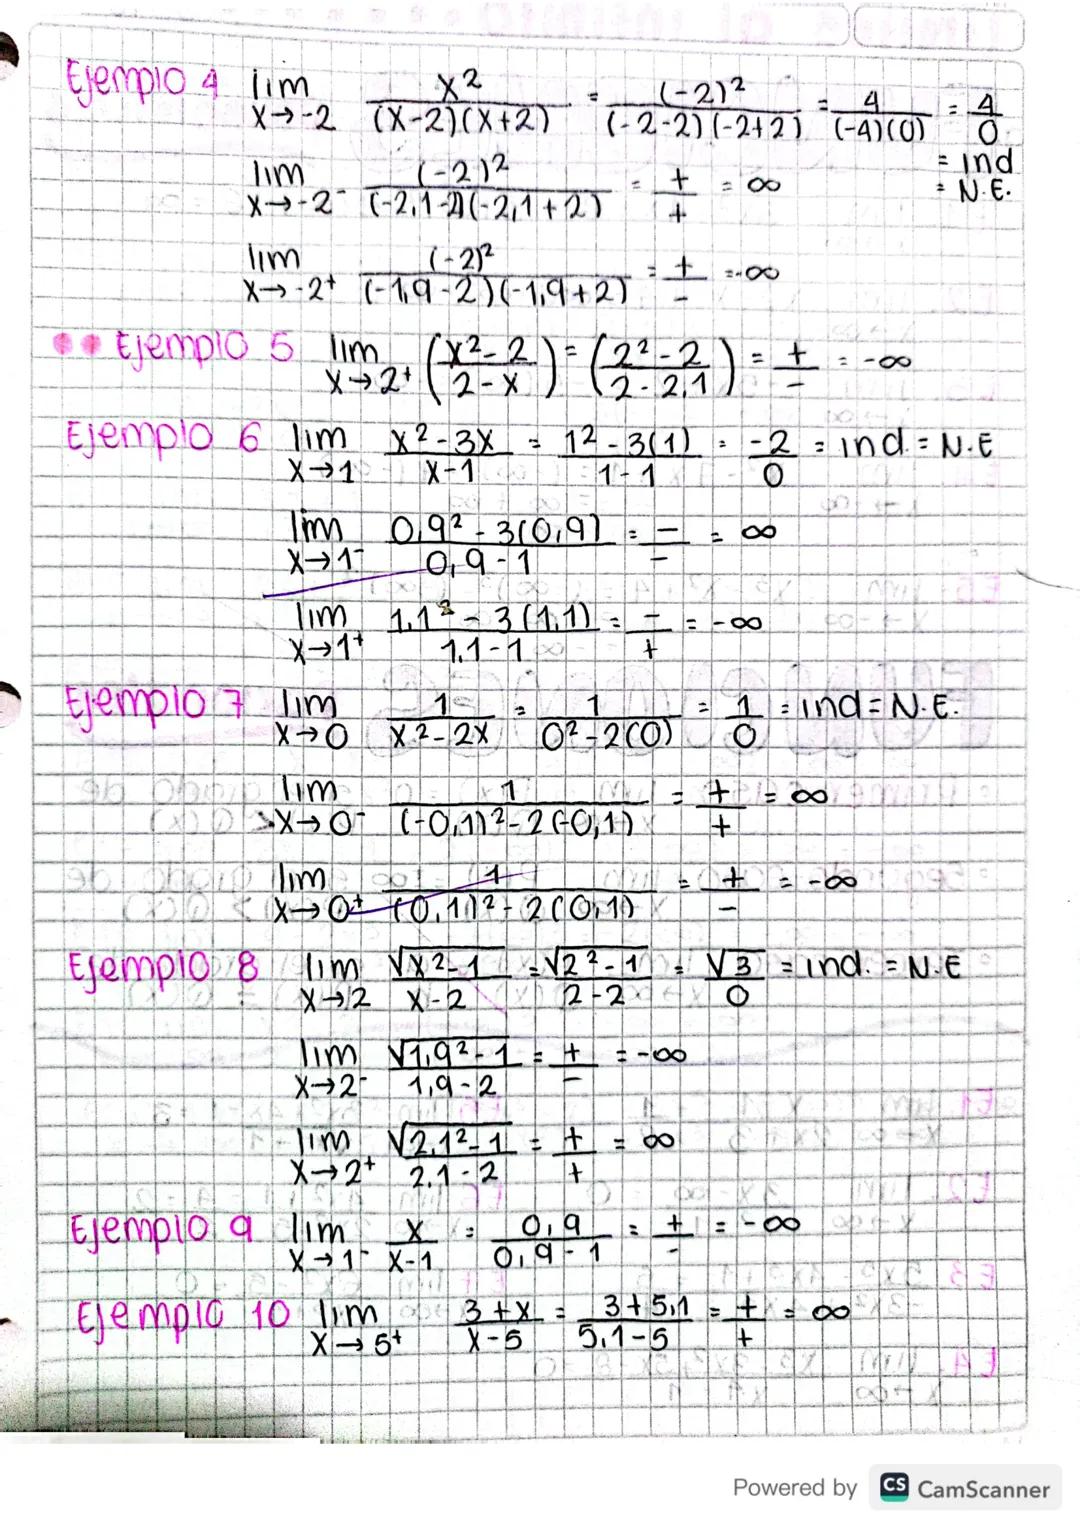 Ejemplo 4 lim x→-2 x²/((x-2)(x+2)) = (-2)²/((-2-2)(-2+2)) = 4/((-4)(0)) = 4/0
= ind
= N.E.
lim x→-2⁻ (-2)²/((-2,1-2)(-2,1+2)) = +/+ = ∞
lim x→-2⁺ (-2)²/((-1,9-2)(-1,9+2)) = +/- = -∞
Ejemplo 5 lim x→2⁺ (x²-2/2-x) = (2²-2/2-2,1) = +/- = -∞
Ejemplo 6 lim x→1 x²-3x/x-1 = 1²-3(1)/1-1 = -2/0 = ind. = N.E
lim x→1⁻ 0,9²-3(0,9)/0,9-1 = -/- = ∞
lim x→1⁺ 1,1²-3(1,1)/1,1-1 = -/+ = -∞
Ejemplo 7 lim x→0 1/x²-2x = 1/0²-2(0) = 1/0 = ind = N.E.
lim x→0⁻ 1/(-0,1)²-2(-0,1) = +/+ = ∞
lim x→0⁺ 1/(0,1)²-2(0,1) = +/- = -∞
Ejemplo 8 lim x→2 √x²-1/x-2 = √2²-1/2-2 = √3/0 = ind. = N.E
lim x→2⁻ √1,9²-1/1,9-2 = +/- = -∞
lim x→2⁺ √2,1²-1/2,1-2 = +/+ = ∞
Ejemplo 9 lim x→1⁻ x/x-1 = 0,9/0,9-1 = +/- = -∞
Ejemplo 10 lim x→5⁺ 3+x/x-5 = 3+5,1/5,1-5 = +/+ = ∞
Powered by CS CamScanner